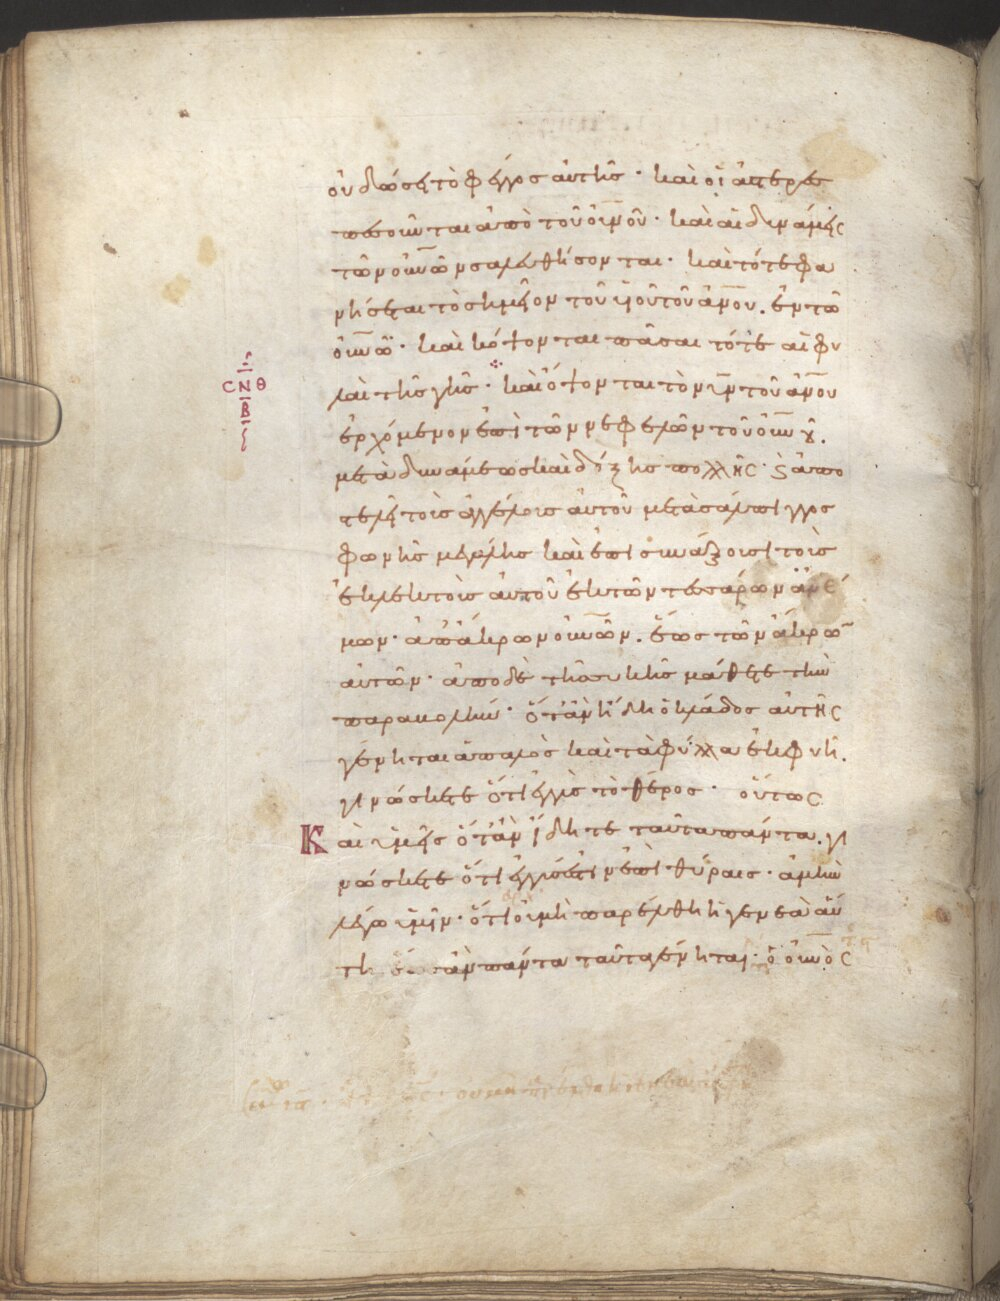 οὐ δώσει τὸ φέγγος αὐτῆς · καὶ οἱ ἀστέρες
πεσοῦνται ἀπὸ τοῦ οὐνοῦ · καὶ αἱ δυνάμεις
τῶν οὐνῶν σαλευθήσονται · καὶ τότε φα
νήσεται τὸ σημεῖον τοῦ υἱοῦ τοῦ ἀνου . ἐν τῶ
οὐνῶ · καὶ κόψονται πᾶσαι τότε αἱ φυ
λαὶ τῆς γῆς · καὶ ὄψονται τὸν υν τοῦ ἀνου
ϹΝΘ
Β
ἐρχόμενον ἐπὶ τῶν νεφελῶν τοῦ οὐνου .
μετὰ δυνάμεως καὶ δόξης πολλῆς · ϗ ἀπο
στελεῖ τοὺς ἀγγέλους αὐτοῦ μετὰ σάλπιγγος
φωνῆς μεγάλης καὶ ἐπισυνάξουσι τοὺς
ἐκλεκτοὺς αὐτοῦ ἐκ τῶν τεσσάρων ἀνέ
μων · ἀπ ἄκρων οὐνῶν . ἕως τῶν ἄκρων
αὐτῶν · ἀπο δὲ τῆς συκῆς μάθετε τὴν
παραβολήν · ὅταν ἤδη ὁ κλάδος αὐτῆς
γένηται ἁπαλὸς καὶ τὰ φύλλα ἐκφυῆ .
γινώσκετε ὅτι ἐγγὺς τὸ θέρος · οὕτως
Και ὑμεῖς ὅταν ἴδητε ταῦτα πάντα . γι
νώσκετε ὅτι ἐγγύς ἐστιν ἐπὶ θύραις · ἀμὴν
λέγω ὑμῖν · ὅτι οὐ μὴ παρέλθη ἡ γενεὰ αὕ
τη ἕως ἂν πάντα ταῦτα γένηται · ὁ οὐνὸς